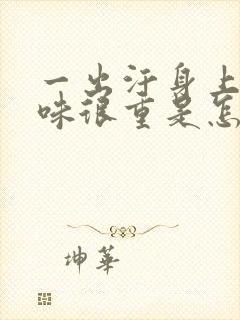 一出汗身上
味很重是怎
坤華